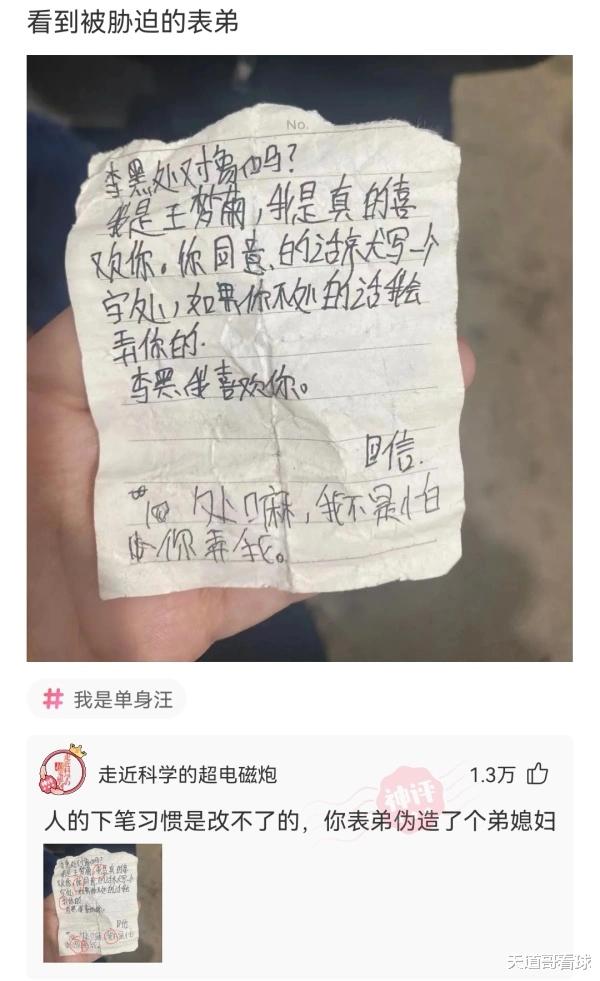 看到被胁迫的表弟
No.
李黑处对象吗?
我是王梦雨,我是真的喜
欢你。你同意的话就写一个
字处,如果你不处的话我会
弄你的.
李黑我喜欢你。
回信.
处嘛,我不是怕
你弄我。
# 我是单身汪
走近科学的超电磁炮
1.3万
神评
人的下笔习惯是改不了的,你表弟伪造了个弟媳妇
天道哥看球